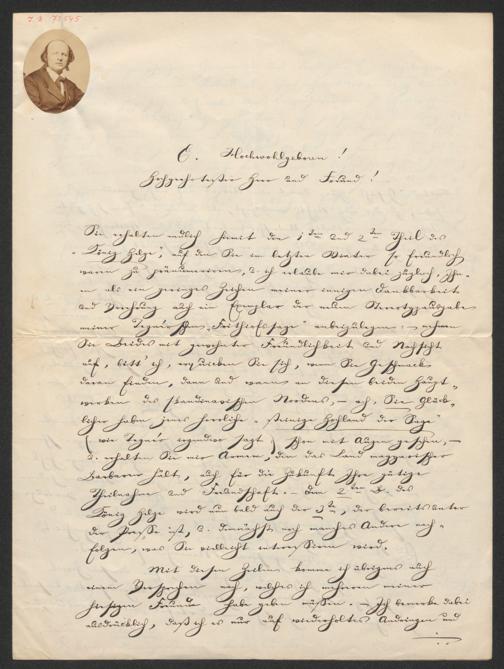 I. N 73545
E. Hochwohlgeboren!
Hochgeehrtester Herr und Freund!
Sie erhalten endlich hiemit den 1ten und 2ten Theil des
„König Helge“, auf den Sie im letzten Winter so freundlich
waren zu pränumeriren, u. ich erlaube mir dabei zugleich, Ihn-
en als ein geringes Zeichen meiner innigen Dankbarkeit
und Verehrung auch ein Exemplar der neuen Stereotypausgabe
meiner Tegnér'schen „Frithiofssage“ anbeizulegen; – nehmen
Sie Beides mit gewohnter Freundlichkeit und Nachsicht
auf, bitt' ich, erquicken Sie sich, wenn Sie Geschmack
daran finden, dann und wann an diesen beiden Haupt-
werken des skandinavischen Nordens, – ach, Sie Glück-
licher haben jenes herrliche „steinige Hochland der Sage“
(wie Tegnér irgendwo sagt) schon mit Augen gesehen, –
u. erhalten Sie mir Armen, den das Land magyarischer
Barbaren hält, auch für die Zukunft Ihre gütige
Theilnahme und Freundschaft. – Dem 2ten B. des
König Helge wird nun bald auch der 3te, der bereits unter
der Presse ist, u. demnächst noch manches Andere nach-
folgen, was Sie vielleicht interessiren wird.
Mit diesen Zeilen komme ich übrigens auch
einem Versprechen nach, welches ich mehreren meiner
hiesigen Freunde habe geben müssen. – Ich bemerke dabei
ausdrücklich, daß ich es nur auf wiederholtes Andringen und